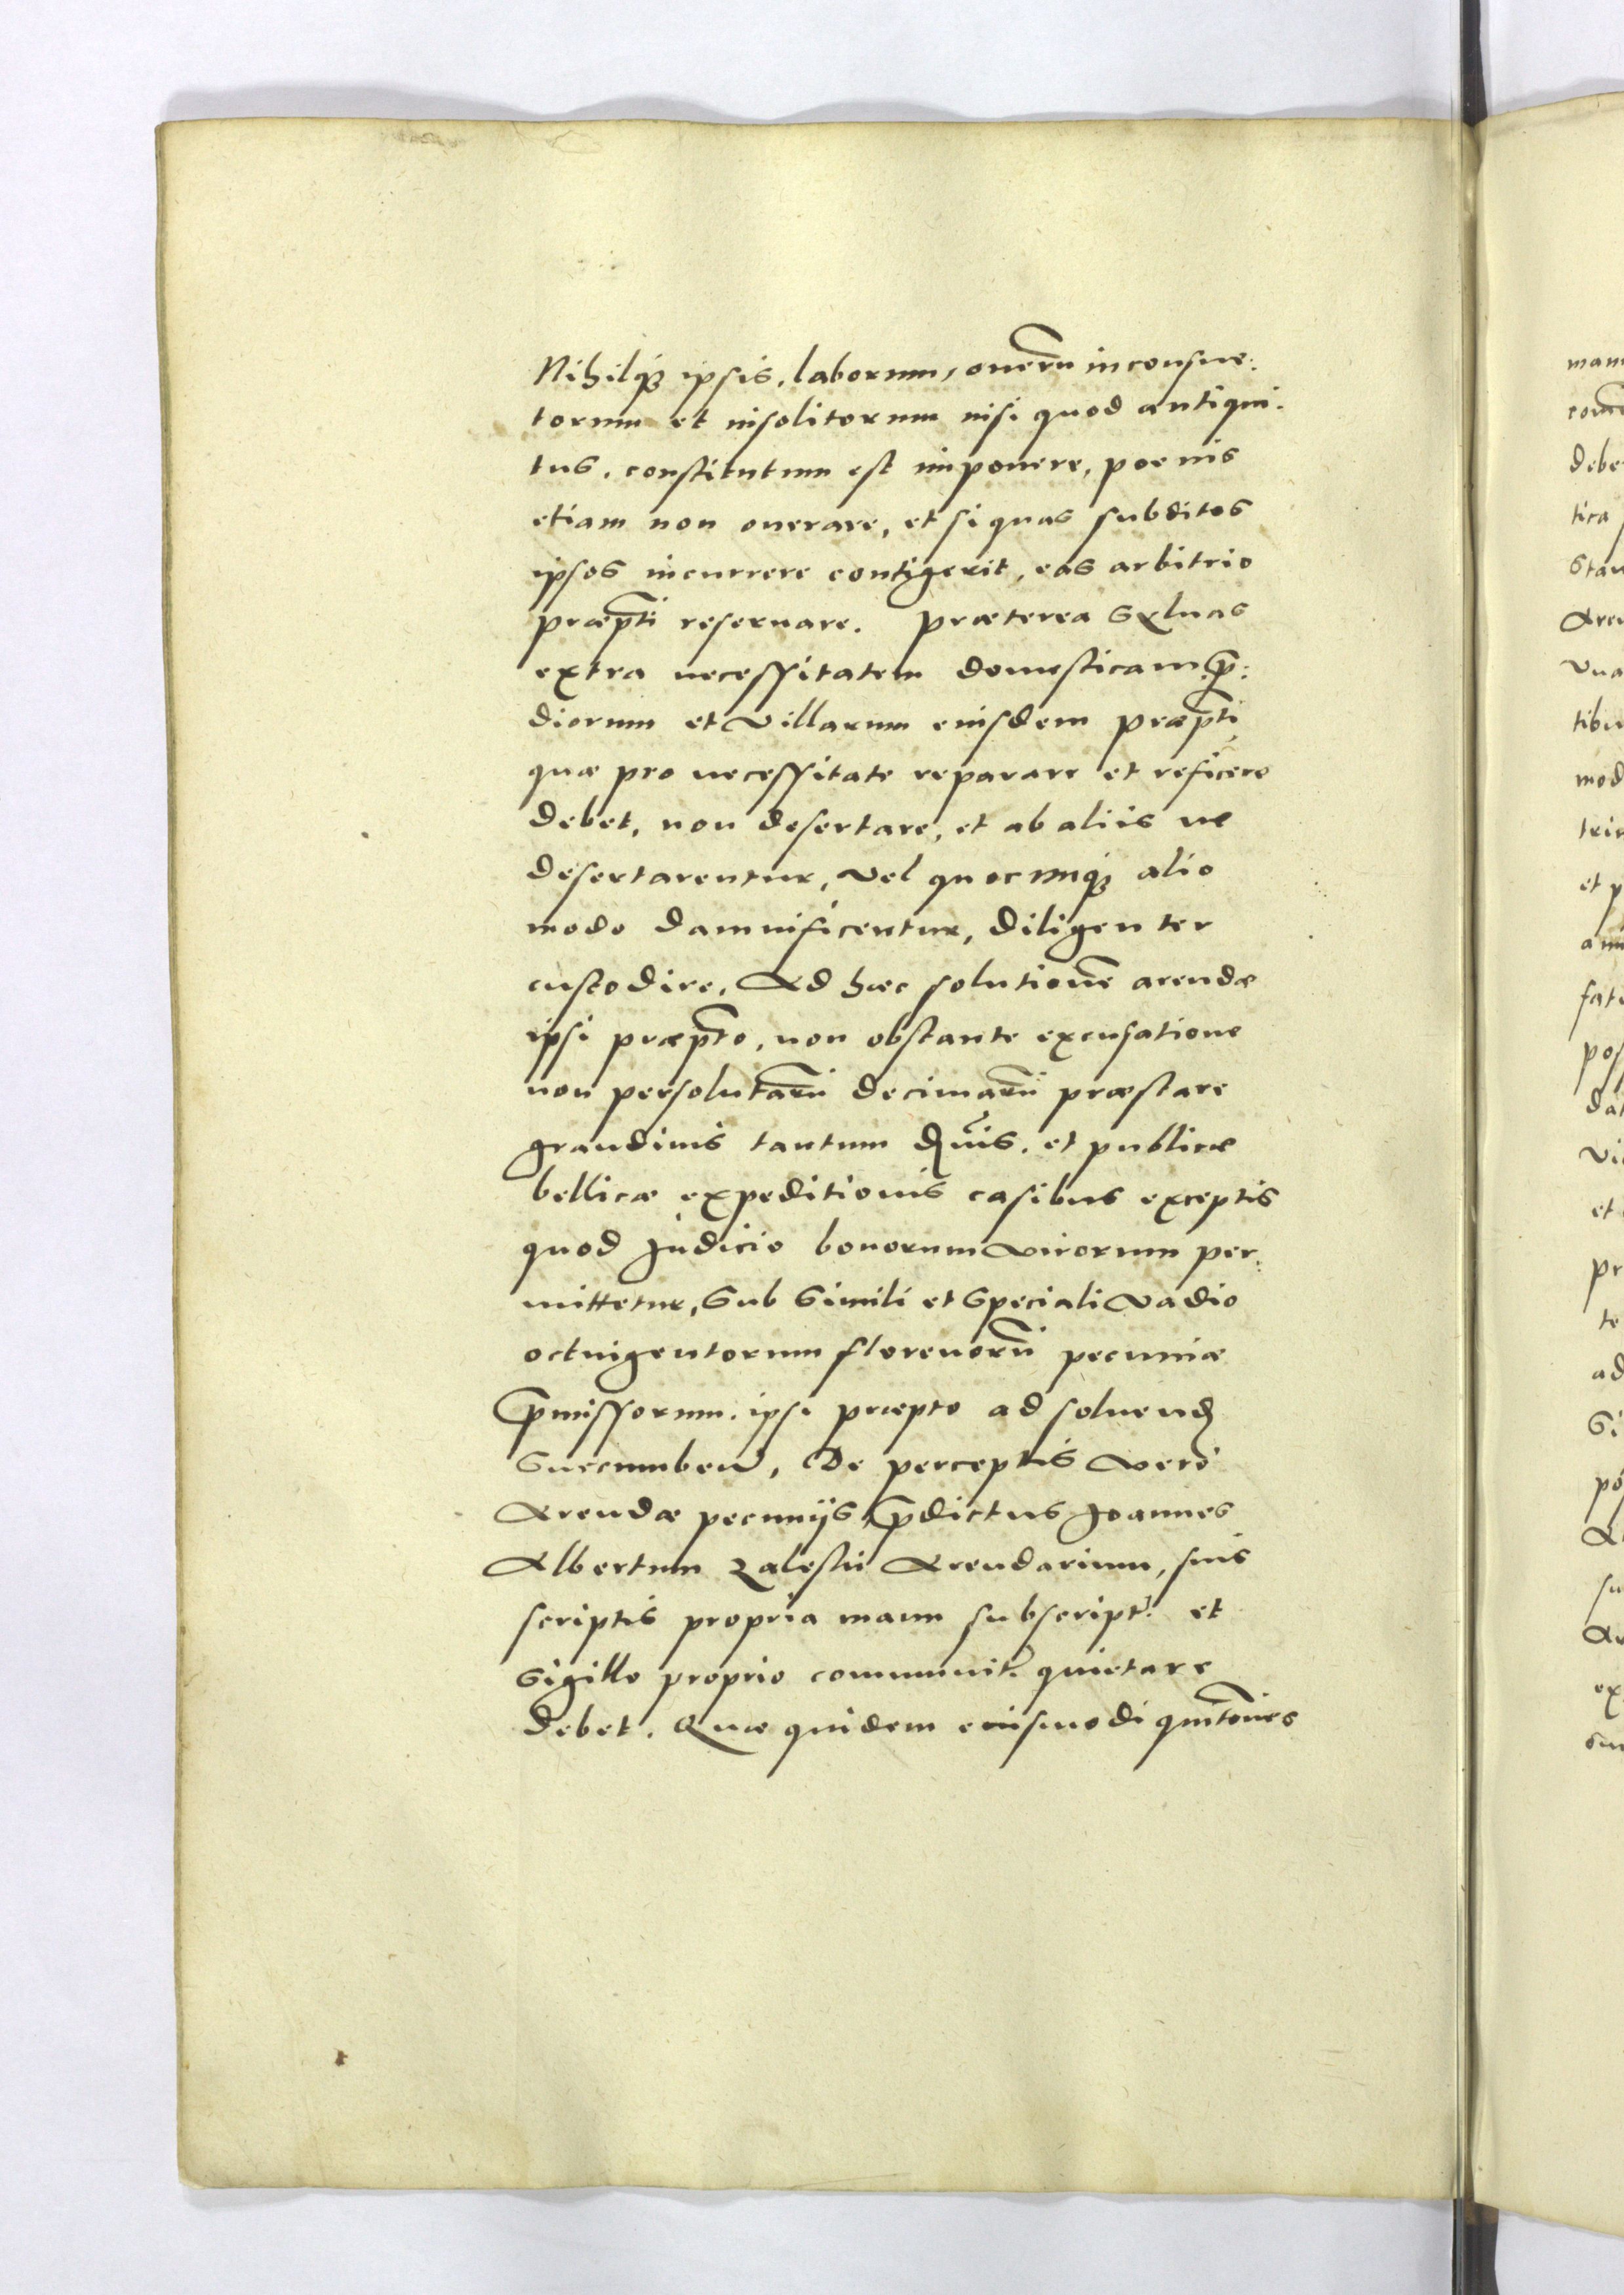 Nihilq́ꝫ ipsis, laborum, onerū inconsue:
torum et insolitorum nisi quod antiqui:
tus, constitutum est imponere, poenis
etiam non onerare, et si quas subditos
ipsos incurrere contigerit, eas arbitrio
præp̄ti reseruare. Præterea Syluas
extra necessitatem domesticam p̄:
diorum et Villarum eiusdem præp̄ti,
quæ pro necessitate reparare et reficere
debet, non desertare, et ab aliis ne
desertarentur, vel quocunq́ꝫ alio
modo damnificentur, diligenter
custodire, Ad hæc solutionē arendæ
ipsi præp̄to, non obstante excusatione
non persolutarū decimarū præstare
grandinis tantum et publicæ
bellicæ expeditionis casibus exceptis
quod Judicio bonorum virorum per:
mittetur, Sub Simili et Speciali Vadio
octuigentorum florenorū pecuniæ
p̄missorum. ipsi præpto ad soluend
Succumben̄, De perceptis verò
Arendæ pecuniis, p̄dictus Joannes
Albertum Zalestii Arendarium, suis
scriptis propria manu subscript: et
Sigillo proprio communit: quietare
debet. Quæ quidem eiusmodi quitōnes
mam
debe
tica
Arem
tibu
mod
et p
fat
pos
dat
et
pr
te
ad
Si
ex